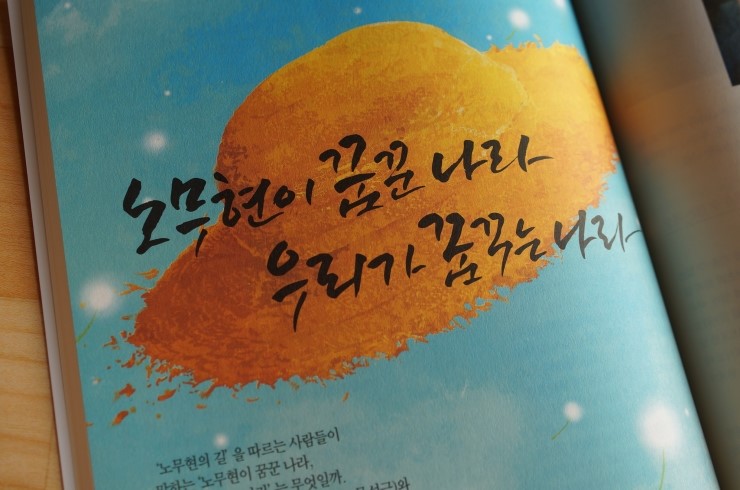 노무현이 꿈꾼 나라
우리가 꿈꾸는 나라
'노무현의 길'을 따르는 사람들이
말하는 '노무현이 꿈꾼 나라,
는 무엇일까.